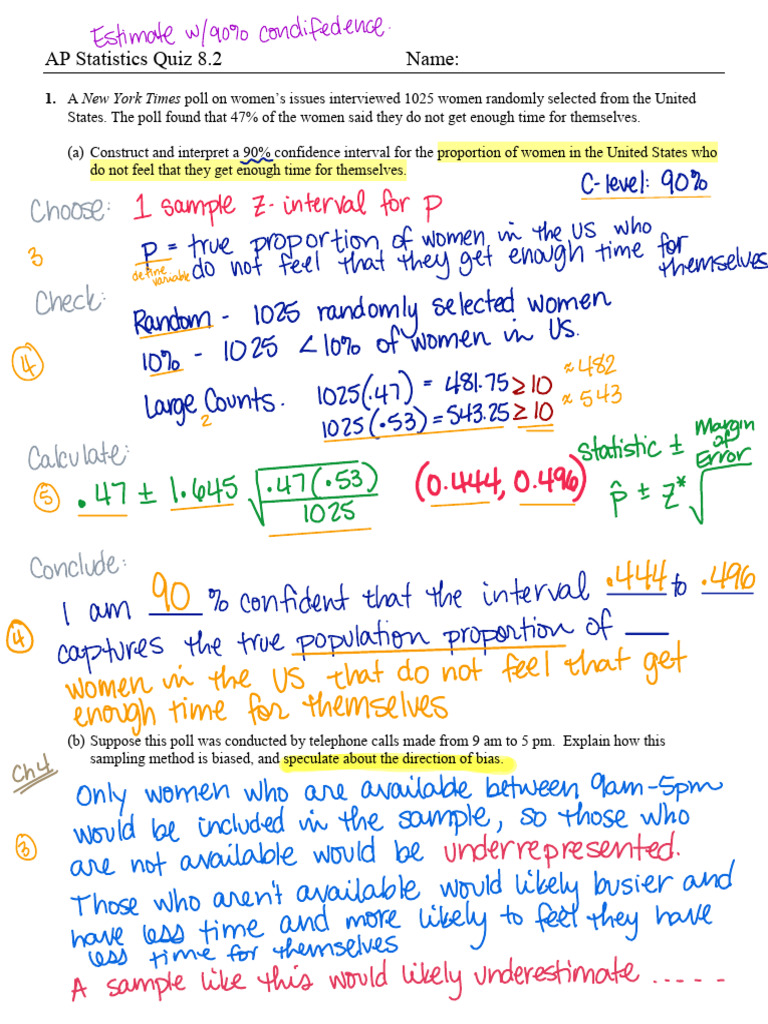 Estimate w/90% condifedence.
AP Statistics Quiz 8.2 Name:
1. A New York Times poll on women's issues interviewed 1025 women randomly selected from the United
States. The poll found that 47% of the women said they do not get enough time for themselves.
(a) Construct and interpret a 90% confidence interval for the proportion of women in the United States who
do not feel that they get enough time for themselves.
C-level: 90%
Choose: 1 sample Z-interval for p
3
p = true proportion of women in the US who
define variable
do not feel that they get enough time for
themselves
Check:
Random - 1025 randomly selected women
10% - 1025 < 10% of women in US.
4
Large Counts. 1025(.47) = 481.75 ≥ 10 ≈ 482
2
1025(.53) = 543.25 ≥ 10 ≈ 543
Calculate:
Statistic ± Margin of Error
5
.47 ± 1.645 √.47(.53)/1025 (0.444, 0.496)
p̂ ± z* √
Conclude:
I am 90 % confident that the interval .444 to .496
4
captures the true population proportion of __
women in the US that do not feel that get
enough time for themselves
(b) Suppose this poll was conducted by telephone calls made from 9 am to 5 pm. Explain how this
sampling method is biased, and speculate about the direction of bias.
Ch4
Only women who are available between 9am-5pm
would be included in the sample, so those who
3
are not available would be underrepresented.
Those who aren't available would likely busier and
have less time and more likely to feel they have
less time for themselves
A sample like this would likely underestimate .....